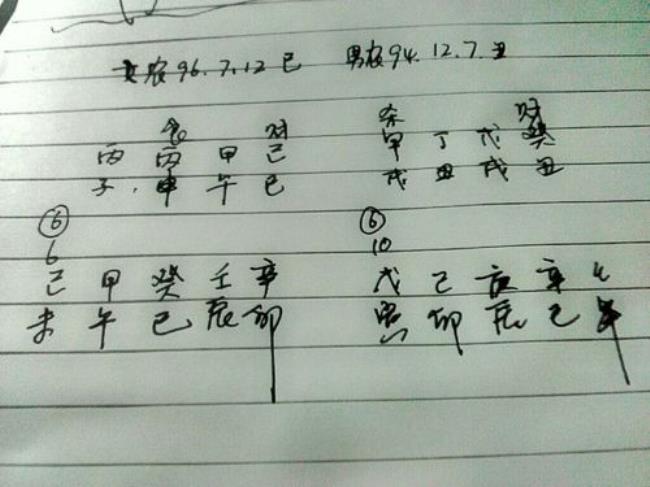 女农96.7.12巳 男农94.12.7.丑
食 财 杀 财
丙 丙 甲 己 甲 丁 戊 癸
子.申 午 巳 戌 丑 戌 丑
⑥ ⑥
6 10
己 甲 癸 壬 辛 戊 己 庚 辛
未 午 巳 辰 卯 寅 卯 辰 巳